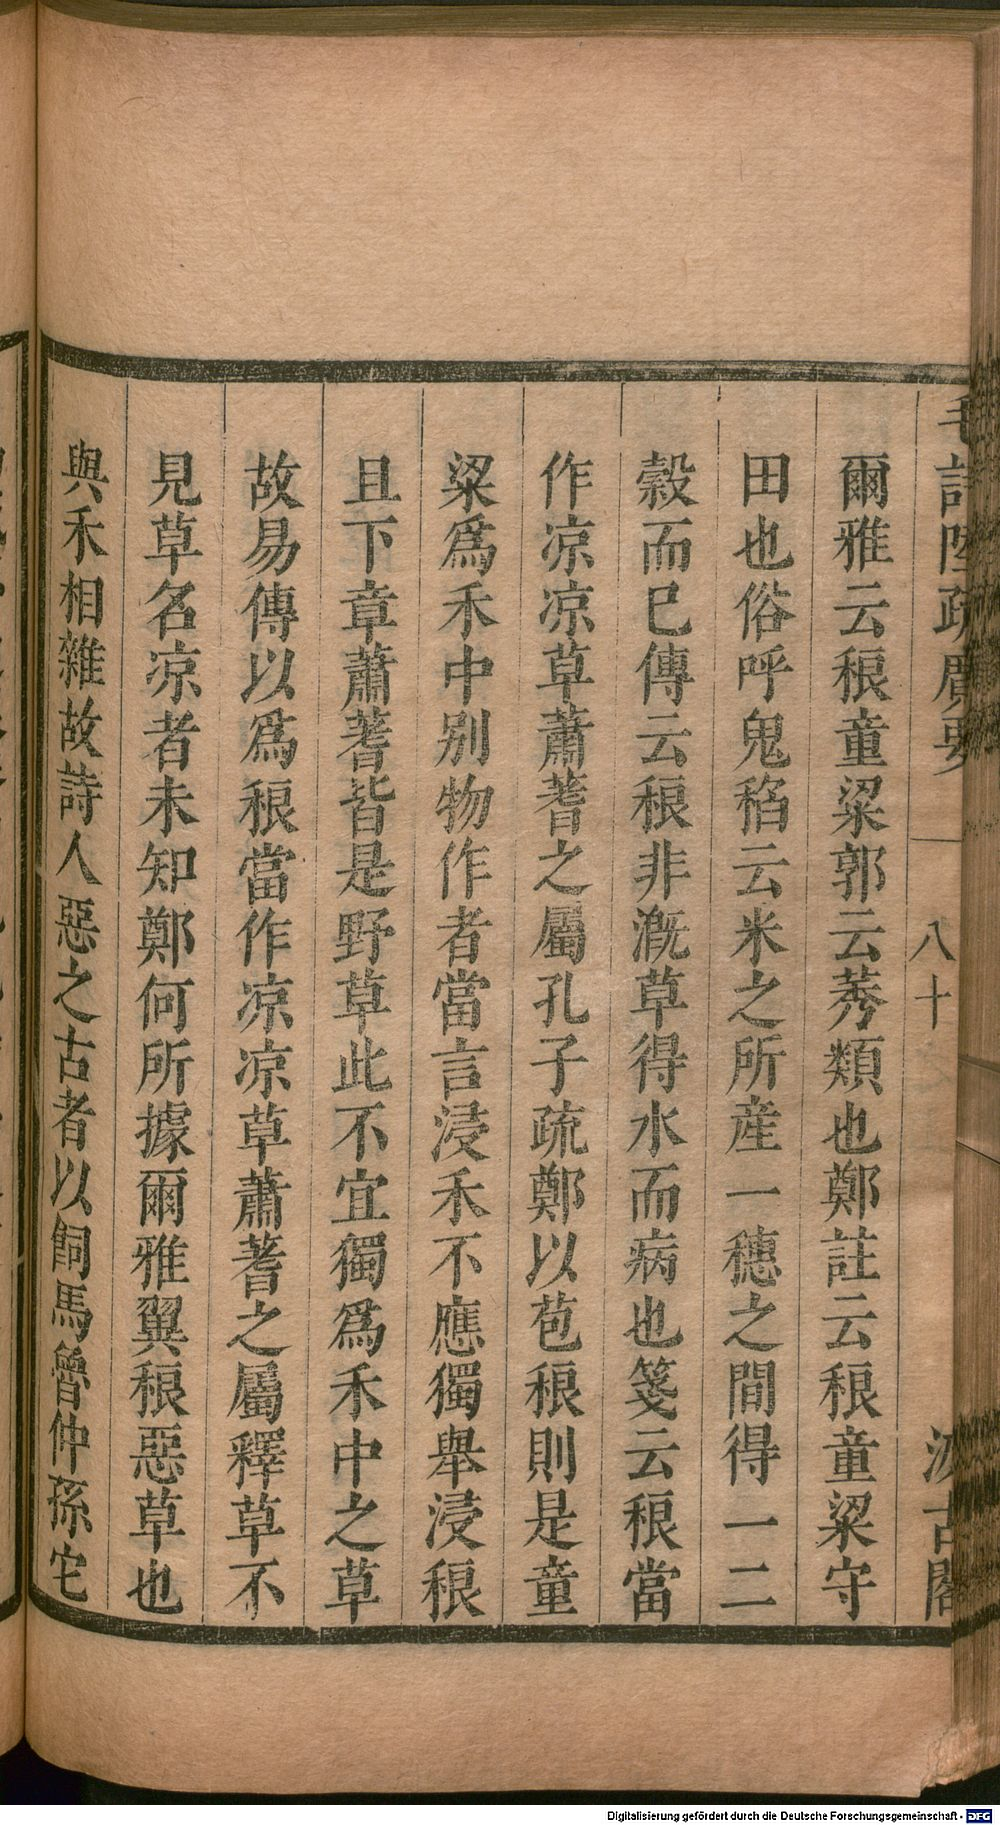 毛詩陸疏廣要
八十
汲古閣
爾雅云稂童粱郭云莠類也鄭註云稂童粱守
田也俗呼鬼稻云米之所産一穗之間得一二
穀而巳傳云稂非漑草得水而病也箋云稂當
作凉凉草蕭蓍之屬孔子疏鄭以苞稂則是童
粱爲禾中别物作者當言浸禾不應獨舉浸稂
且下章蕭蓍皆是野草此不宜獨爲禾中之草
故易傳以爲稂當作凉凉草蕭蓍之屬釋草不
見草名凉者未知鄭何所據爾雅翼稂惡草也
與禾相雜故詩人惡之古者以飼馬魯仲孫宅
Digitalisierung gefördert durch die Deutsche Forschungsgemeinschaft - DFG